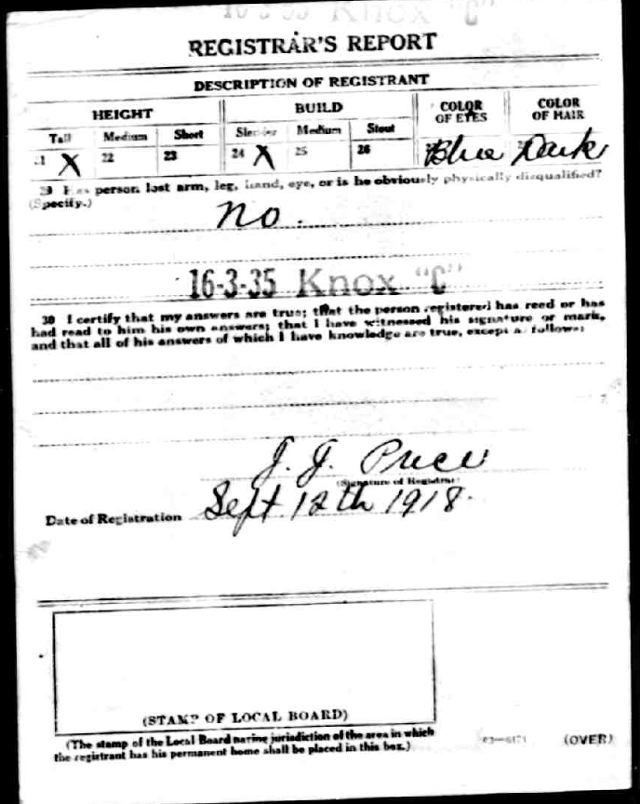 REGISTRAR'S REPORT
DESCRIPTION OF REGISTRANT
HEIGHT BUILD COLOR OF EYES COLOR OF HAIR
Tall Medium Short Slender Medium Stout
21 X 22 23 24 X 25 26 Blue Dark
29 Has person lost arm, leg, hand, eye, or is he obviously physically disqualified?
(Specify.)
no.
16-3-35 Knox "C"
30 I certify that my answers are true; that the person registered has reed or has
had read to him his own answers; that I have witnessed his signature or mark,
and that all of his answers of which I have knowledge are true, except as follows:
J. J. Price
(Signature of Registrar)
Date of Registration Sept 12th 1918.
(STAMP OF LOCAL BOARD)
(The stamp of the Local Board having jurisdiction of the area in which
the registrant has his permanent home shall be placed in this box.)
(OVER)